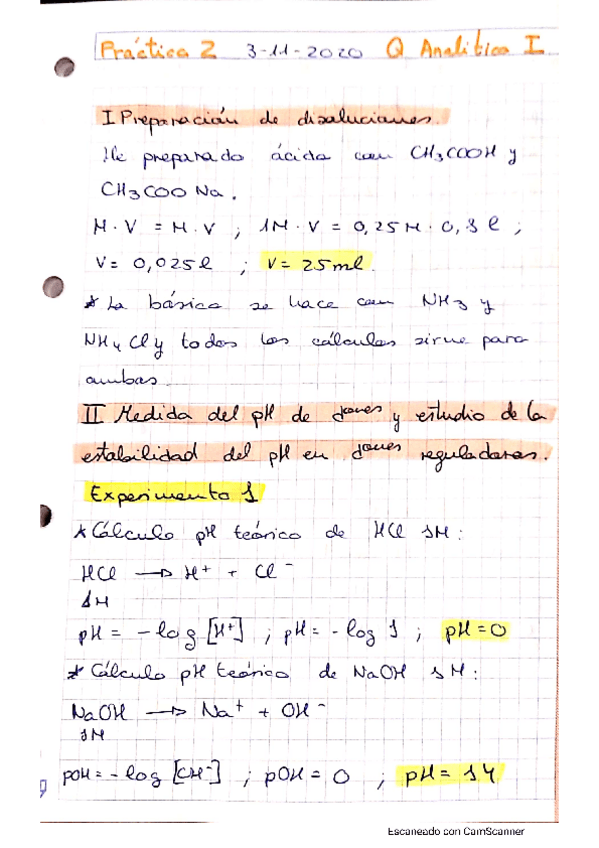 Práctica 2 3-11-2020 Q Analítica I
I Preparación de disoluciones.
He preparado ácida con CH3COOH y
CH3COO Na.
M · V = M · V ; 1M · V = 0,25M · 0,1 l ;
V = 0,025 l ; V = 25 ml.
* La básica se hace con NH3 y
NH4Cl y todos los cálculos sirve para
ambas
II Medida del pH de dones y estudio de la
estabilidad del pH en dones reguladoras.
Experimento 1
* Cálculo pH teórico de HCl 1M :
HCl → H+ + Cl-
1M
pH = - log [H+] ; pH = - log 1 ; pH = 0
* Cálculo pH teórico de NaOH 1M :
NaOH → Na+ + OH-
1M
pOH = - log [OH-] ; pOH = 0 ; pH = 14
Escaneado con CamScanner